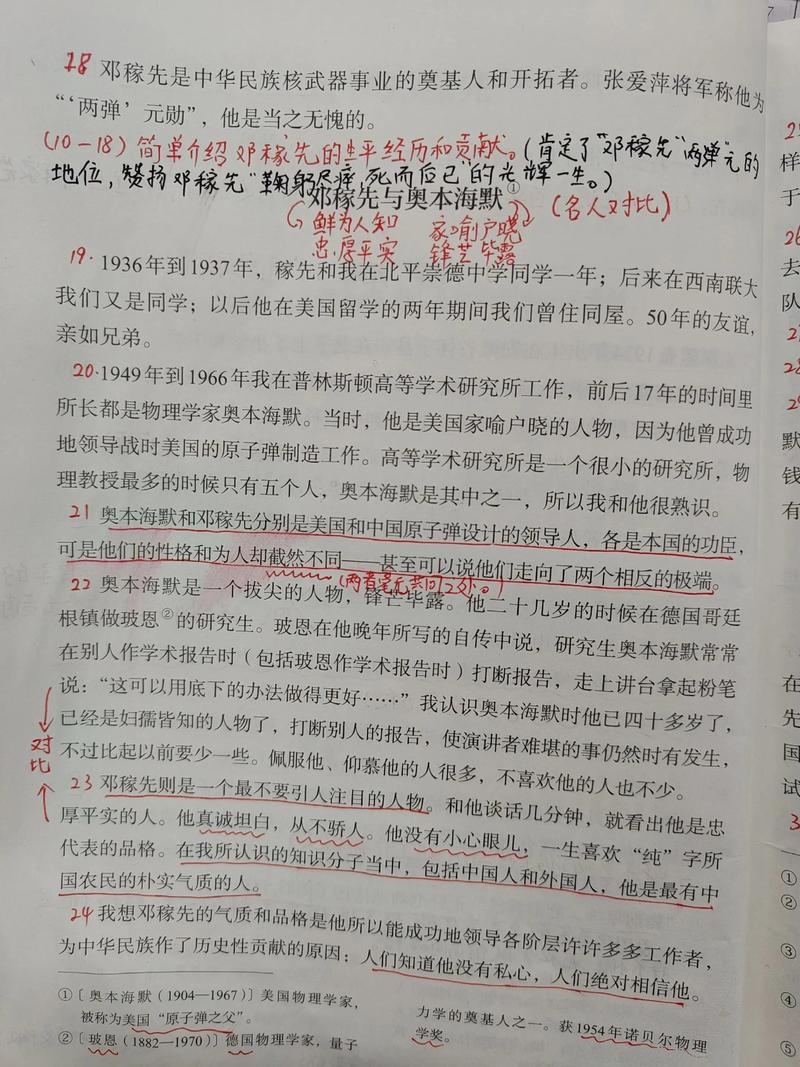 18 邓稼先是中华民族核武器事业的奠基人和开拓者。张爱萍将军称他为
“‘两弹’元勋”，他是当之无愧的。
(10-18) 简单介绍邓稼先的生平经历和贡献。(肯定了“邓稼先“两弹”元的
地位，赞扬邓稼先“鞠躬尽瘁，死而后已”的光辉一生。)
邓稼先与奥本海默①
(名人对比)
鲜为人知 家喻户晓
忠厚平实 锋芒毕露
19. 1936年到1937年，稼先和我在北平崇德中学同学一年；后来在西南联大
我们又是同学；以后他在美国留学的两年期间我们曾住同屋。50年的友谊，
亲如兄弟。
20. 1949年到1966年我在普林斯顿高等学术研究所工作，前后17年的时间里
所长都是物理学家奥本海默。当时，他是美国家喻户晓的人物，因为他曾成功
地领导战时美国的原子弹制造工作。高等学术研究所是一个很小的研究所，物
理教授最多的时候只有五个人，奥本海默是其中之一，所以我和他很熟识。
21 奥本海默和邓稼先分别是美国和中国原子弹设计的领导人，各是本国的功臣，
可是他们的性格和为人却截然不同——甚至可以说他们走向了两个相反的极端。
(两者毫无共同之处。)
22 奥本海默是一个拔尖的人物，锋芒毕露。他二十几岁的时候在德国哥廷
根镇做玻恩②的研究生。玻恩在他晚年所写的自传中说，研究生奥本海默常常
在别人作学术报告时（包括玻恩作学术报告时）打断报告，走上讲台拿起粉笔
说：“这可以用底下的办法做得更好……”我认识奥本海默时他已四十多岁了，
已经是妇孺皆知的人物了，打断别人的报告，使演讲者难堪的事仍然时有发生，
不过比起以前要少一些。佩服他、仰慕他的人很多，不喜欢他的人也不少。
对比
23 邓稼先则是一个最不要引人注目的人物。和他谈话几分钟，就看出他是忠
厚平实的人。他真诚坦白，从不骄人。他没有小心眼儿，一生喜欢“纯”字所
代表的品格。在我所认识的知识分子当中，包括中国人和外国人，他是最有中
国农民的朴实气质的人。
24 我想邓稼先的气质和品格是他所以能成功地领导各阶层许许多多工作者，
为中华民族作了历史性贡献的原因：人们知道他没有私心，人们绝对相信他。
①〔奥本海默（1904—1967）〕美国物理学家，
被称为美国“原子弹之父”。
②〔玻恩（1882—1970）〕德国物理学家，量子
力学的奠基人之一。获1954年诺贝尔物理
学奖。
7
25
样
于
26
去
队
27
28
29
默
钱
有
在
先
国
试
3
①
②
③
④
⑤